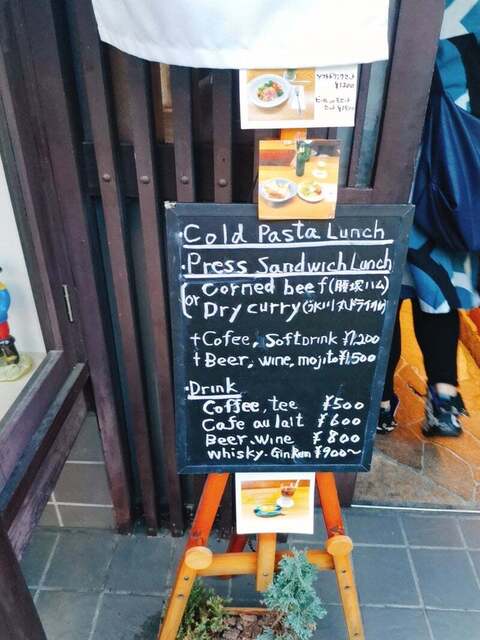 ソフトドリンクセット
¥1200
セット ¥1500
Cold Pasta Lunch
Press Sandwich Lunch
Corned beef (腰塚ハム)
or
Dry curry (氷川丸ドライカレー)
+Cofee, Soft Drink ¥1,200
+Beer, wine, mojito ¥1,500
・Drink
Coffee, tee ¥500
Cafe au lait ¥600
Beer. wine ¥800
Whisky. Gin. Rum ¥900〜